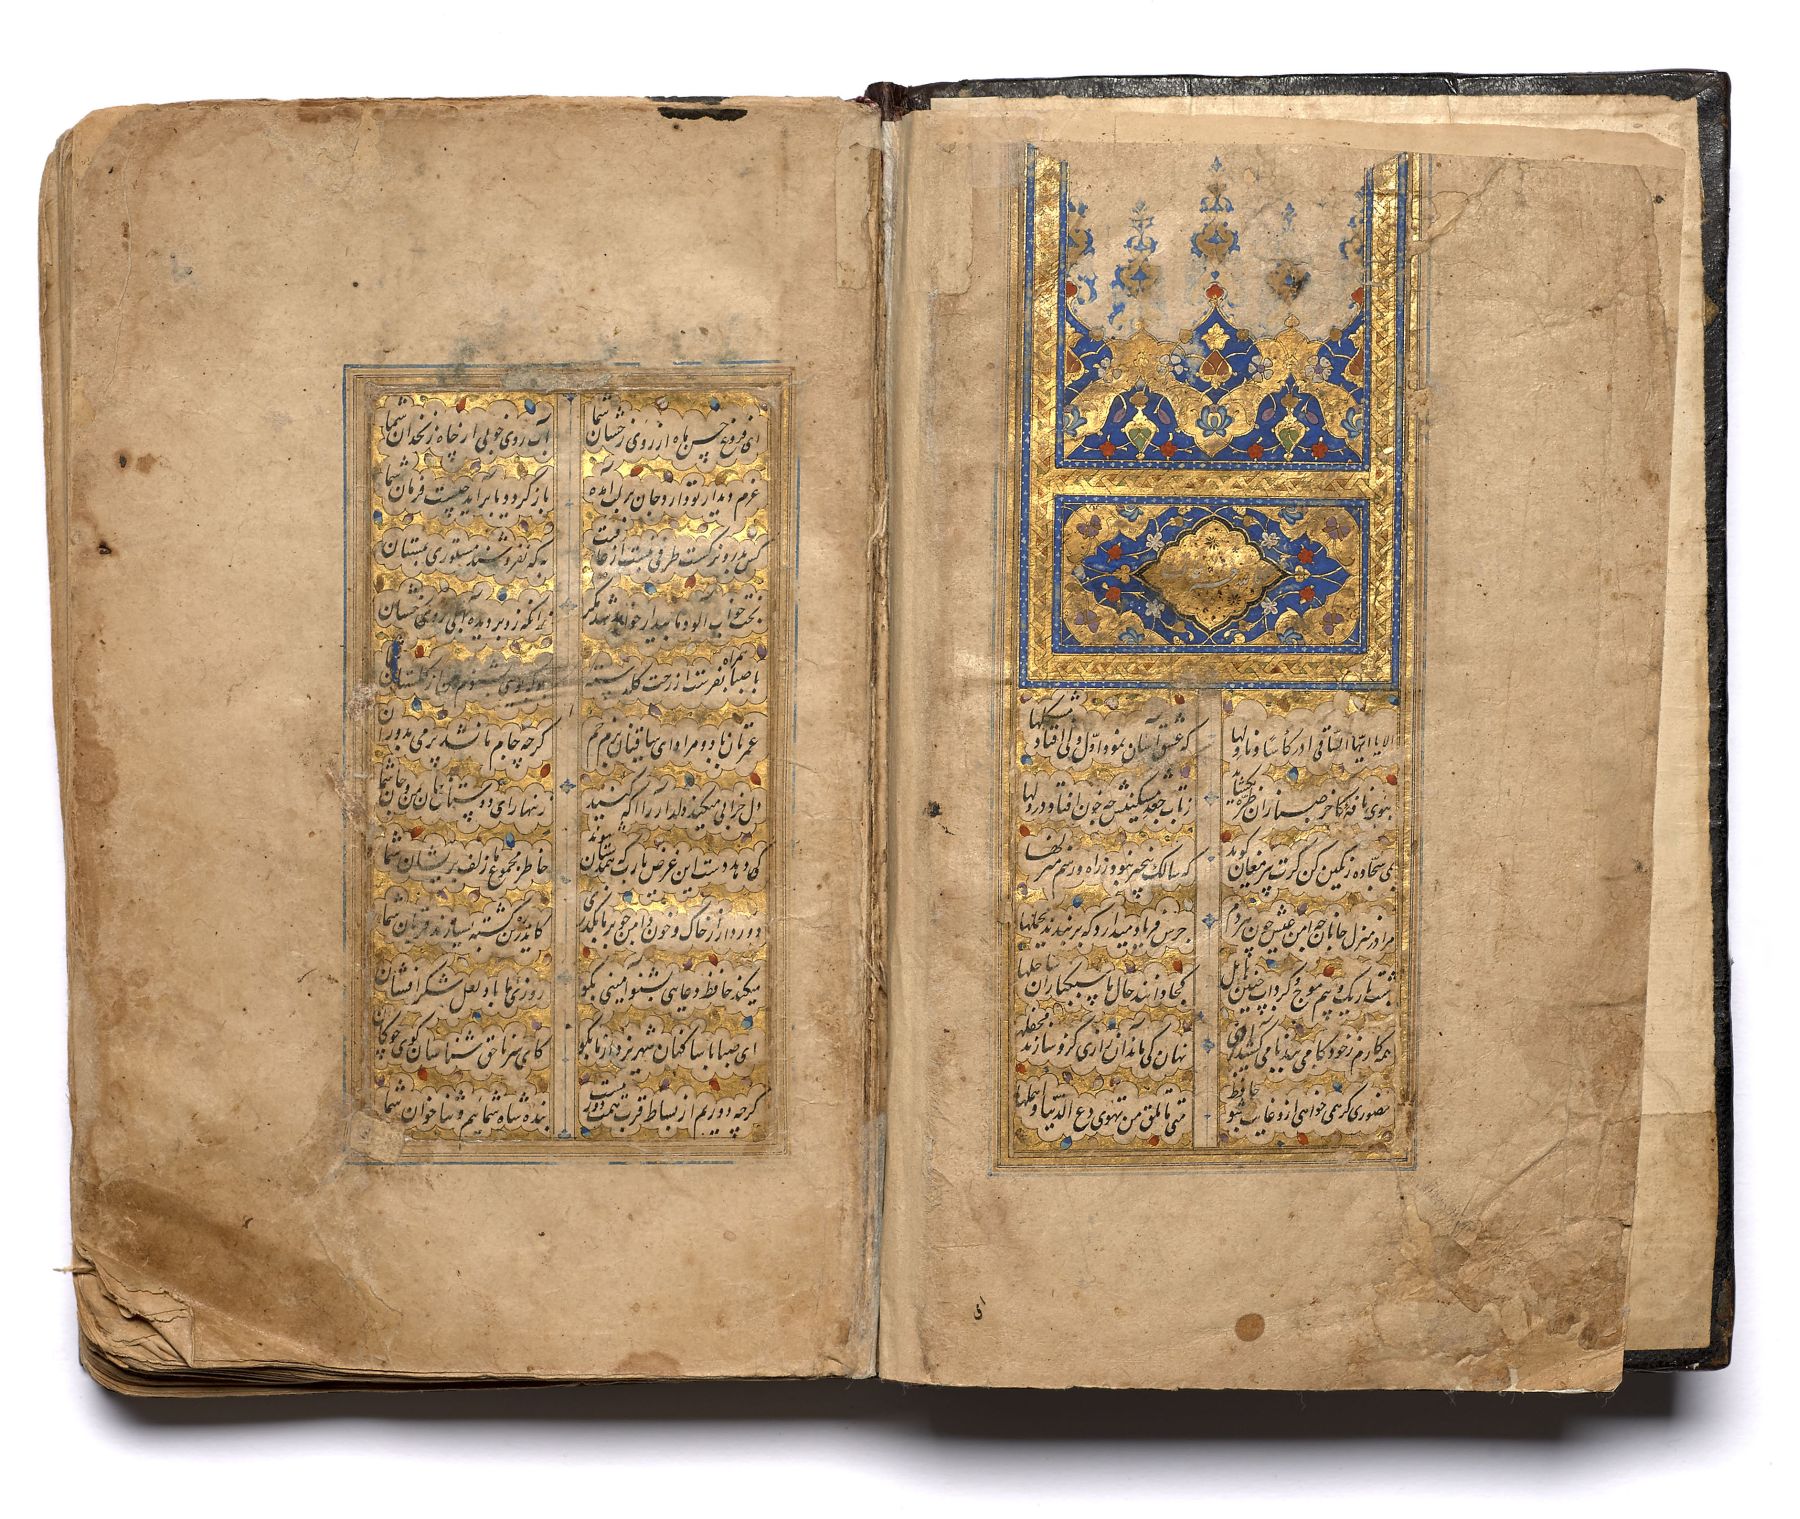 الا یا ایها الساقی ادر کأسا و ناولها که عشق آسان نمود اول ولی افتاد مشکلها
ببوی نافه کاخر صبا زان طره بکشاید ز تاب جعد مشکینش چه خون افتاد در دلها
بمی سجاده رنگین کن گرت پیر مغان گوید که سالک بیخبر نبود ز راه و رسم منزلها
مرا در منزل جانان چه امن عیش چون هر دم جرس فریاد میدارد که بربندید محملها
شب تاریک و بیم موج و گردابی چنین هایل کجا دانند حال ما سبکباران ساحلها
همه کارم ز خود کامی ببدنامی کشید آری نهان کی ماند آن رازی کزو سازند محفلها
حضوری گر همی خواهی ازو غایب مشو حافظ متی ما تلق من تهوی دع الدنیا و اهملها
ای
ای فروغ حسن ماه از روی رخشان شما آب روی خوبی از چاه زنخدان شما
عزم دیدار تو دارد جان بر لب آمده باز گردد یا برآید چیست فرمان شما
کس بدور نرگست طرفی نبست از عافیت به که نفروشند مستوری بمستان
بخت خواب آلود ما بیدار خواهد شد مگر زانکه زد بر دیده آبی روی رخشان
با صبا همراه بفرست از رخت گلدسته بو که بوی بشنوم از گلستان
عمرتان باد و مراد ای ساقیان بزم جم گرچه جام ما نشد پر می بدوران
دل خرابی میکند دلدار را آگه کنید زنهار ای دوستان جان من و جان شما
کی دهد دست این غرض یارب که همدستان شوند خاطر مجموع ما زلف پریشان شما
دور دار از خاک و خون دامن چو بر ما بگذری کاندرین ره کشته بسیارند قربان شما
میکند حافظ دعایی بشنو آمینی بگو روزی ما باد لعل شکرافشان
ای صبا با ساکنان شهر یزد از ما بگو کای سر ناحق شناسان گوی چوکان
گرچه دوریم از بساط قرب همت دور نیست بنده شاه شمائیم و ثناخوان شما